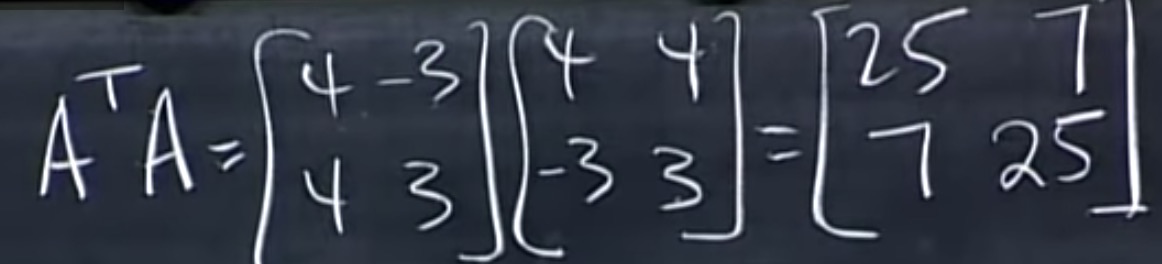 AᵀA = [4 -3; 4 3] [4 4; -3 3] = [25 7; 7 25]